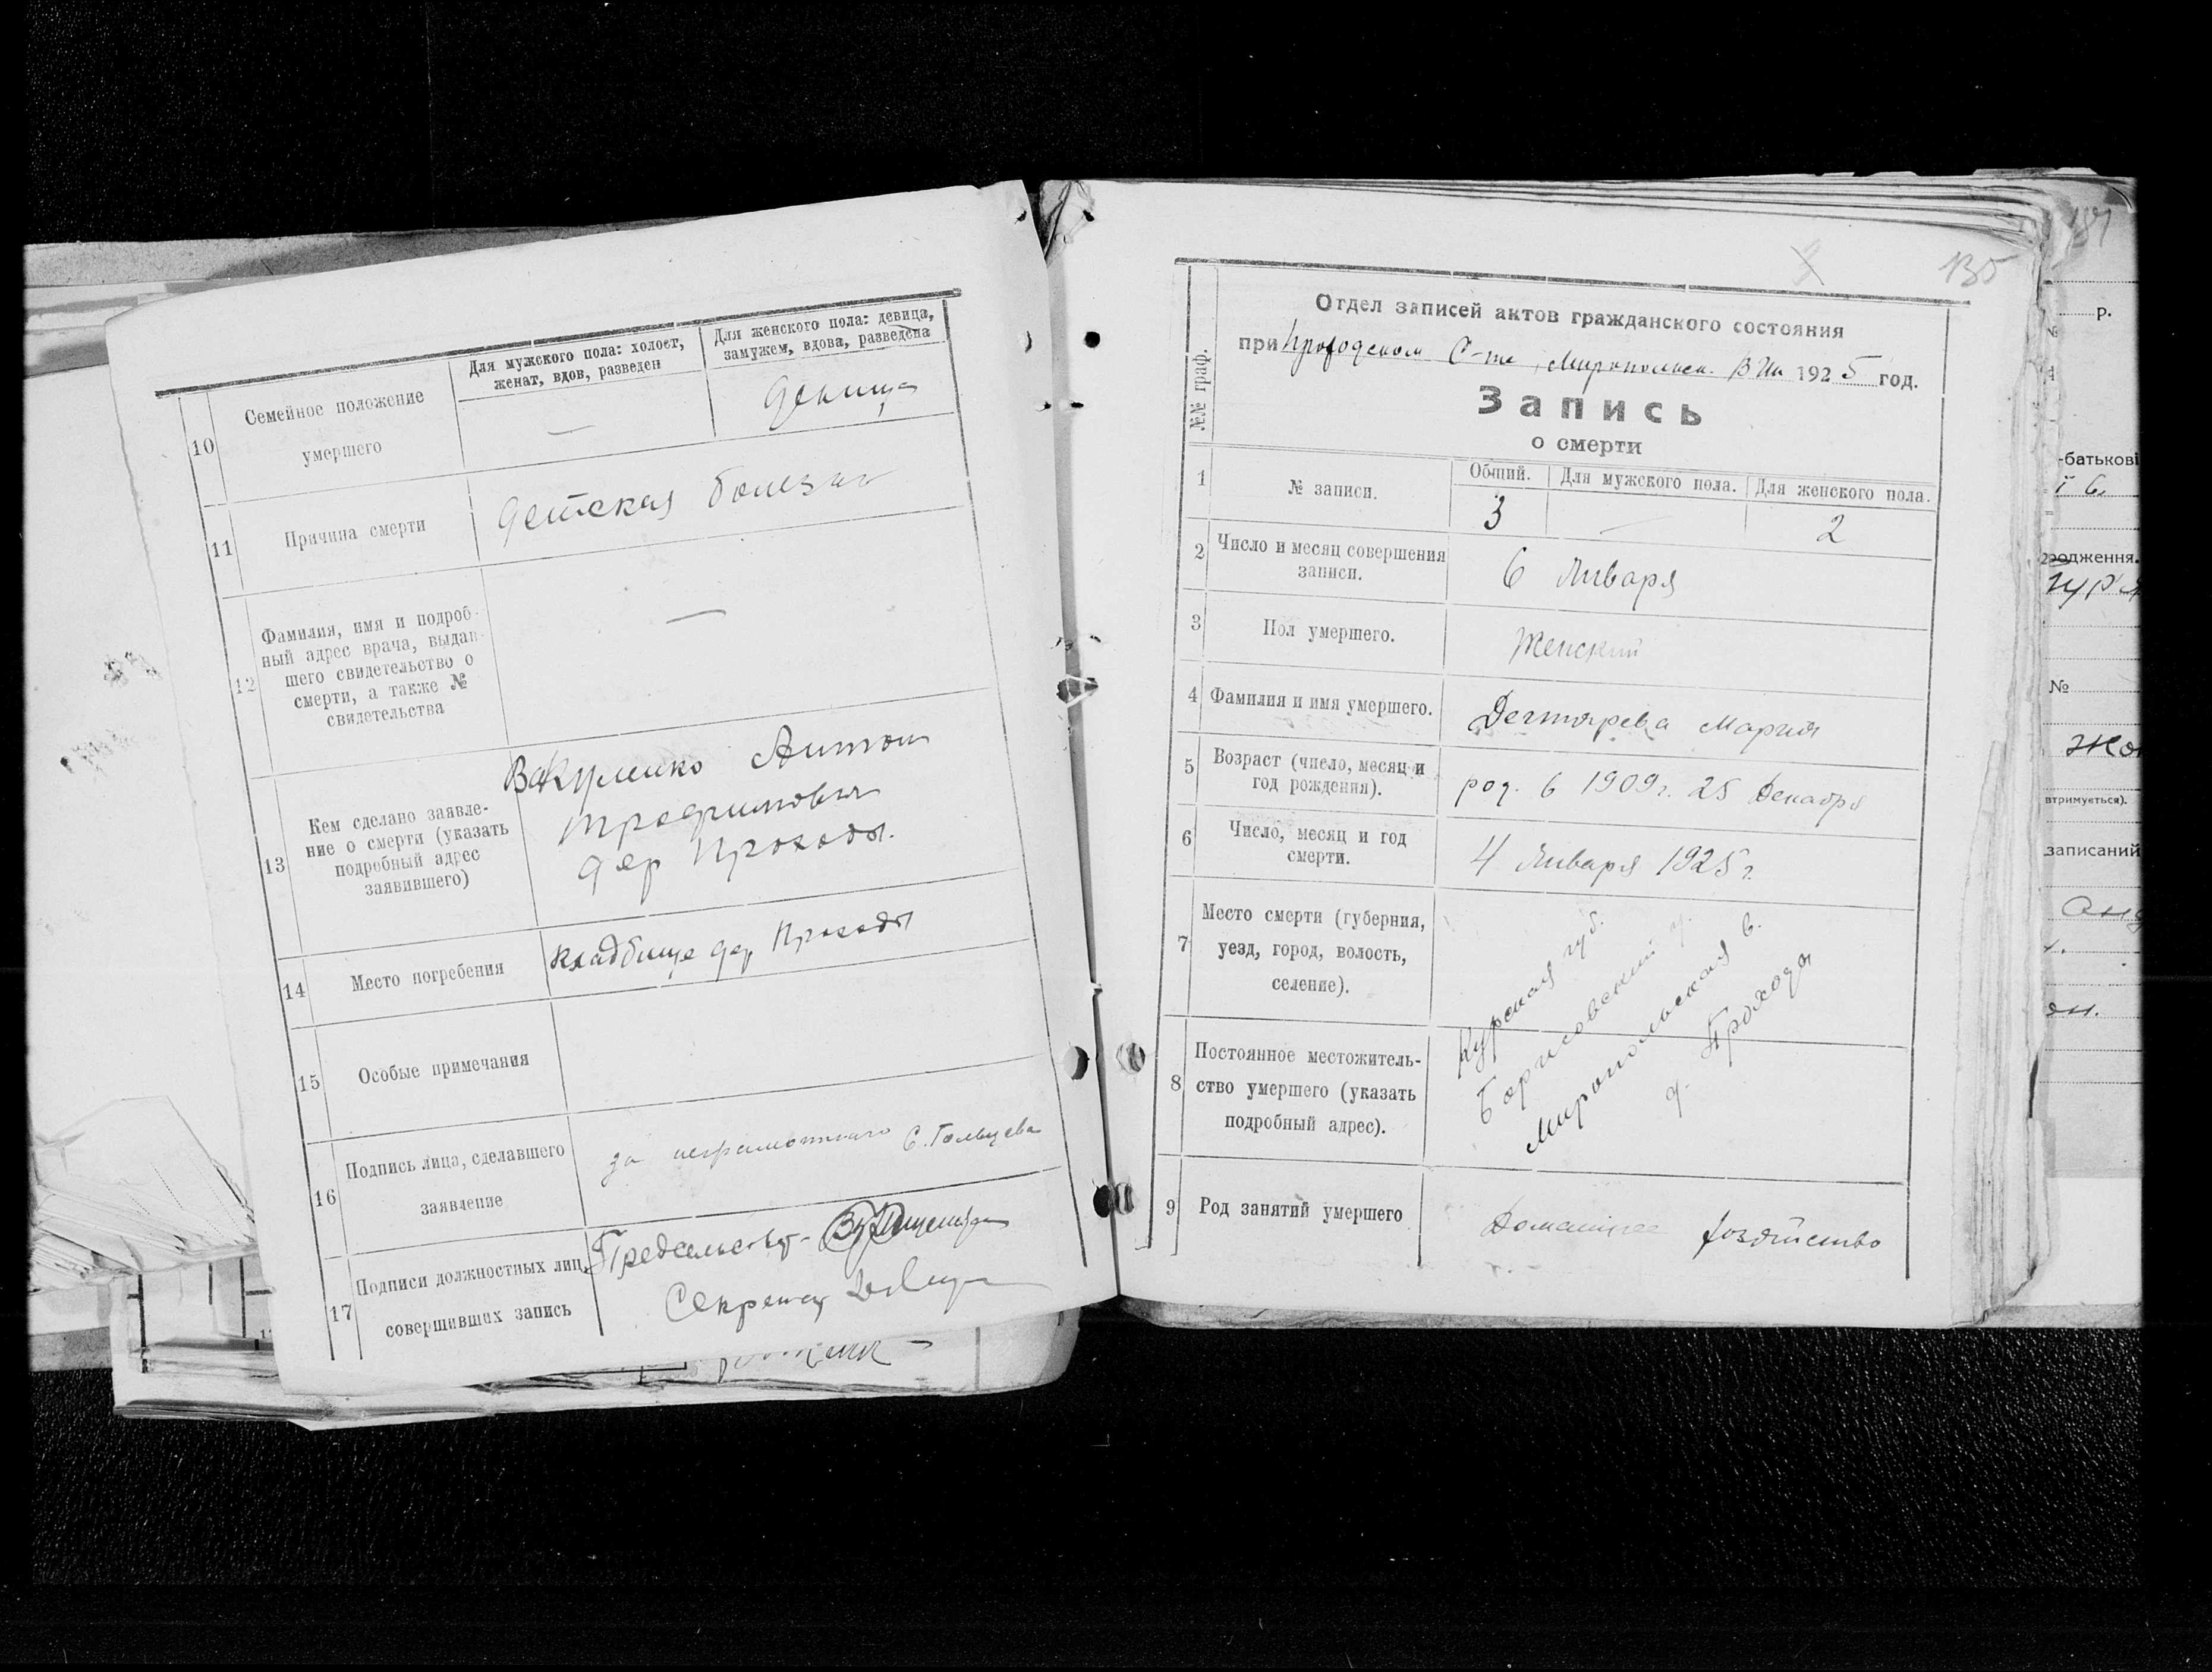 10
Семейное положение
умершего
Для мужского пола: холост,
женат, вдов, разведен
—
Для женского пола: девица,
замужем, вдова, разведена
девица
11
Причина смерти
детская болезнь
12
Фамилия, имя и подроб-
ный адрес врача, выдав-
шего свидетельство о
смерти, а также №
свидетельства
—
13
Кем сделано заявле-
ние о смерти (указать
подробный адрес
заявившего)
Вакуленко Антон
Трофимович
дер Прохода.
14
Место погребения
кладбище дер Прохода
15
Особые примечания
16
Подпись лица, сделавшего
заявление
за неграмотного С. Гольцева
17
Подписи должностных лиц,
совершивших запись
Предсельсовет-
Секретарь
135
№№ граф.
Отдел записей актов гражданского состояния
при Проходском С-те, Миропольск. ВИк 1925 год.
Запись
о смерти
1
№ записи.
Общий.
Для мужского пола.
Для женского пола.
3
—
2
2
Число и месяц совершения
записи.
6 Января
3
Пол умершего.
Женский
4
Фамилия и имя умершего.
Дегтярева Мария
5
Возраст (число, месяц и
год рождения).
род. в 1909 г. 25 Декабря
6
Число, месяц и год
смерти.
4 Января 1925 г.
7
Место смерти (губерния,
уезд, город, волость,
селение).
8
Постоянное местожитель-
ство умершего (указать
подробный адрес).
Курская губ.
Борисовский у.
Миропольская в.
д. Прохода
9
Род занятий умершего
Домашнее хозяйство
181
р.
№
-батькові
родження.
№
втримується).
записаний